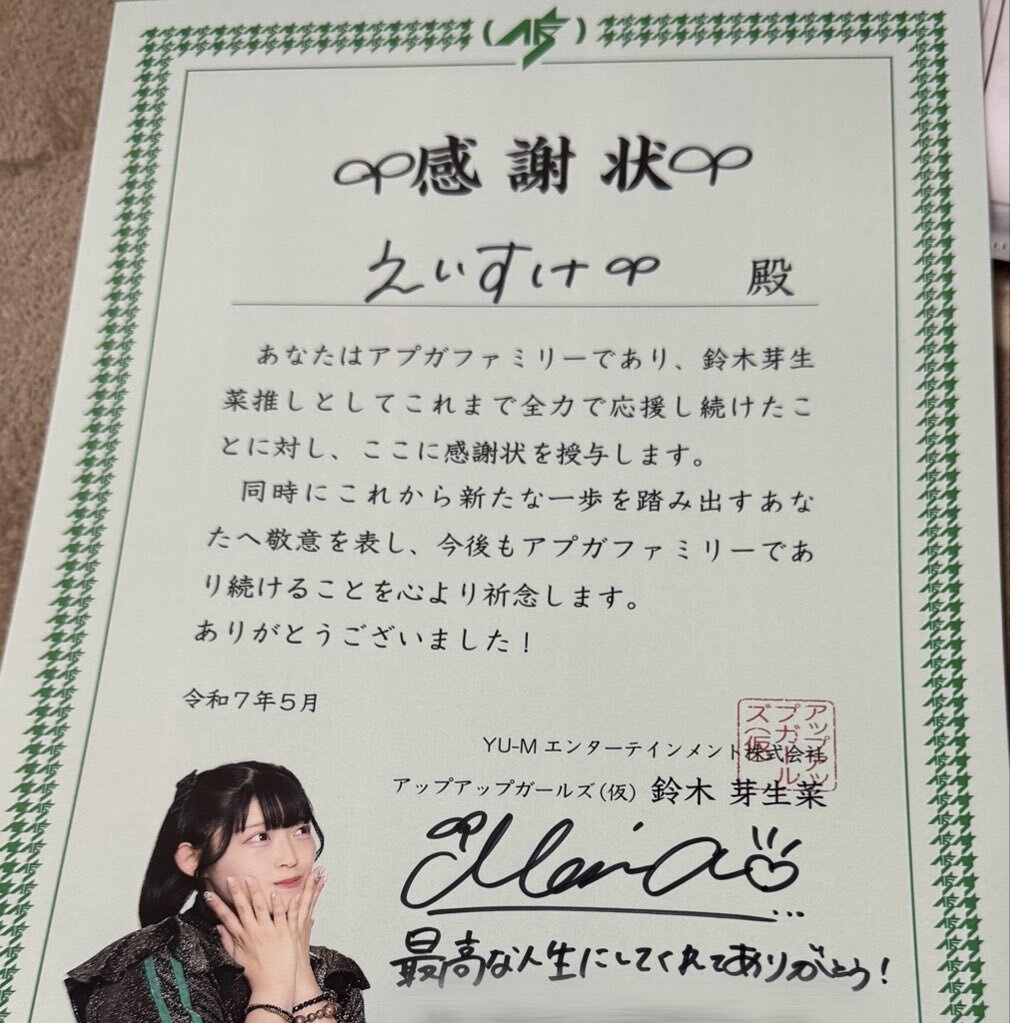 感謝状
えいすけ 殿
あなたはアプガファミリーであり、鈴木芽生
菜推しとしてこれまで全力で応援し続けたこ
とに対し、ここに感謝状を授与します。
同時にこれから新たな一歩を踏み出すあな
たへ敬意を表し、今後もアプガファミリーであ
り続けることを心より祈念します。
ありがとうございました！
令和7年5月
YU-Mエンターテインメント株式会社
アップアップガールズ(仮) 鈴木 芽生菜
アップアッ
プガール
ズ(仮
Meina
最高な人生にしてくれてありがとう！